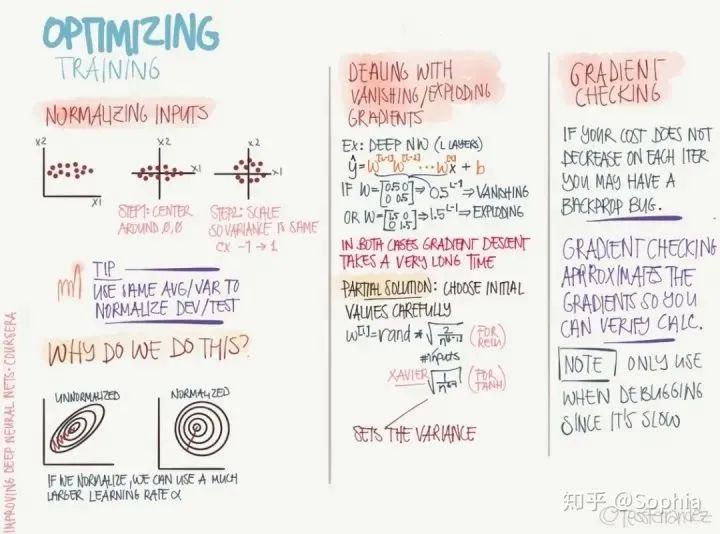 OPTIMIZING
TRAINING
NORMALIZING INPUTS
X2
X1
X2
X1
X2
X1
STEP1: CENTER
AROUND 0,0
STEP2: SCALE
SO VARIANCE IS SAME
EX -1 → 1
TIP
USE SAME AVG/VAR TO
NORMALIZE DEV/TEST
WHY DO WE DO THIS?
UNNORMALIZED
NORMALIZED
IF WE NORMALIZE, WE CAN USE A MUCH
LARGER LEARNING RATE α
IMPROVING DEEP NEURAL NETS · COURSERA
DEALING WITH
VANISHING/EXPLODING
GRADIENTS
EX: DEEP NW (L LAYERS)
ŷ = W^[L-1] W^[L-2] ... W^[1] X + b
IF W = [0.5 0 0 0.5] ⇒ 0.5^L-1 ⇒ VANISHING
OR W = [1.5 0 0 1.5] ⇒ 1.5^L-1 ⇒ EXPLODING
IN BOTH CASES GRADIENT DESCENT
TAKES A VERY LONG TIME
PARTIAL SOLUTION: CHOOSE INITIAL
VALUES CAREFULLY
W^[l] = rand * √(2/n^[l-1]) (FOR RELU)
#inputs
XAVIER √(1/n^[l-1]) (FOR TANH)
SETS THE VARIANCE
GRADIENT
CHECKING
IF YOUR COST DOES NOT
DECREASE ON EACH ITER
YOU MAY HAVE A
BACKPROP BUG.
GRADIENT CHECKING
APPROXIMATES THE
GRADIENTS SO YOU
CAN VERIFY CALC.
NOTE ONLY USE
WHEN DEBUGGING
SINCE IT'S SLOW
知乎 @Sophia
@TessFerrandez